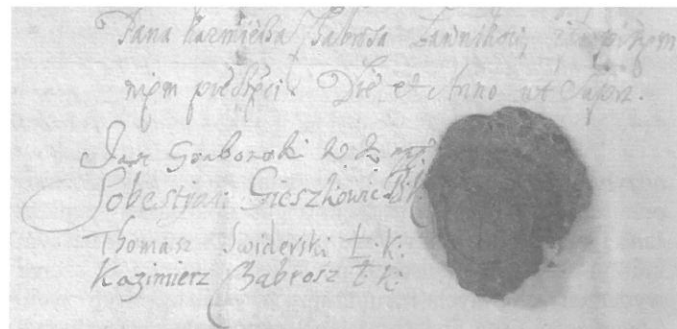 Pana Kazmierza Babrosza Ławnikow,
mpm pieczęci Die et Anno ut Supra.
Jan Graborski
Sobestjan Gieszkowic
Thomasz Swiderski Ł. k:
Kazimierz Babrosz ł k: